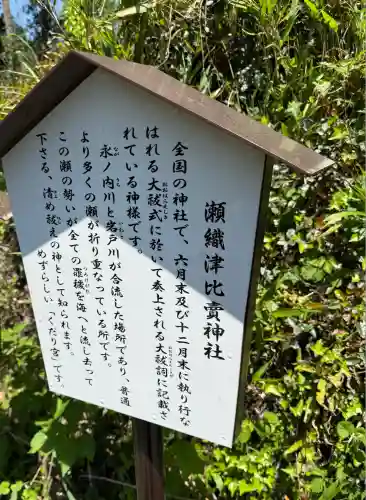 瀬織津比賣神社
全国の神社で、六月末及び十二月末に執り行な
はれる大祓式に於いて奏上される大祓詞に記載さ
れている神様です。
永ノ内川と岩戸川が合流した場所であり、普通
より多くの瀬が折り重なっている所です。
この瀬の勢いが全ての罪穢を海へと流し去って
下さる、清め祓えの神として知られます。
めずらしい「くだり宮」です。